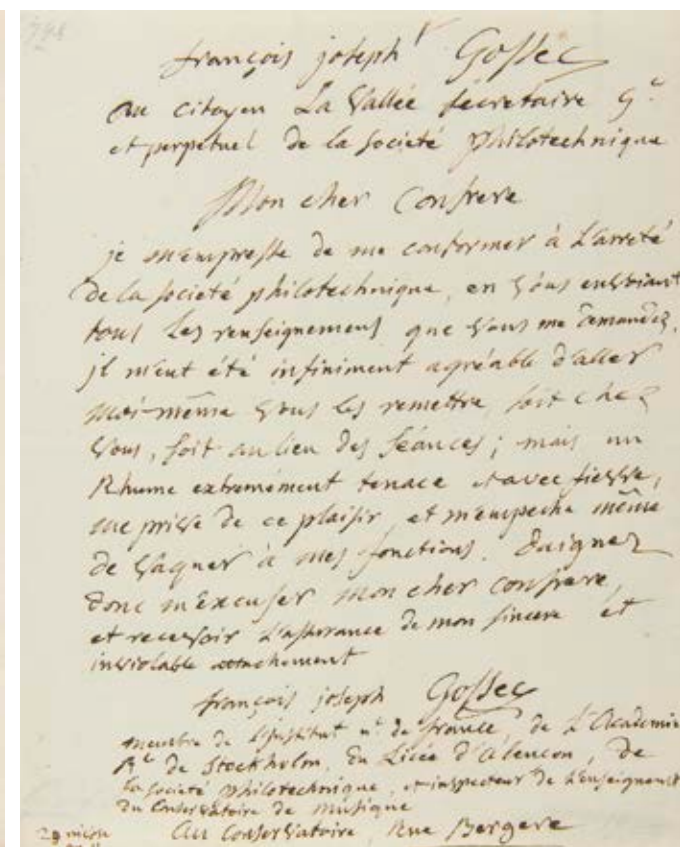 françois joseph Gossec
au citoyen La Vallée secretaire G.
et perpetuel de la societé philotechnique
Mon cher Confrere
je m'empresse de me conformer à L'arreté
de la societé philotechnique, en vous envoiant
tous Les renseignemens que vous me demandez.
il m'eut été infiniment agréable d'aller
moi-même vous les remettre, soit chez
vous, soit au lieu des séances ; mais un
Rhume extremément tenace et avec fievre,
me prive de ce plaisir et m'empeche même
de vaquer à mes fonctions. daignez
donc m'excuser mon cher confrere,
et recevoir L'assurance de mon sincere et
inviolable attachement
françois joseph Gossec
membre de L'institut n.l de france, de L'Academie
R.le de Stockholm, du Licée d'alencon, de
la societé philotechnique, et inspecteur de L'enseignement
du Conservatoire de musique
Au Conservatoire, Rue Bergere
29 nivose